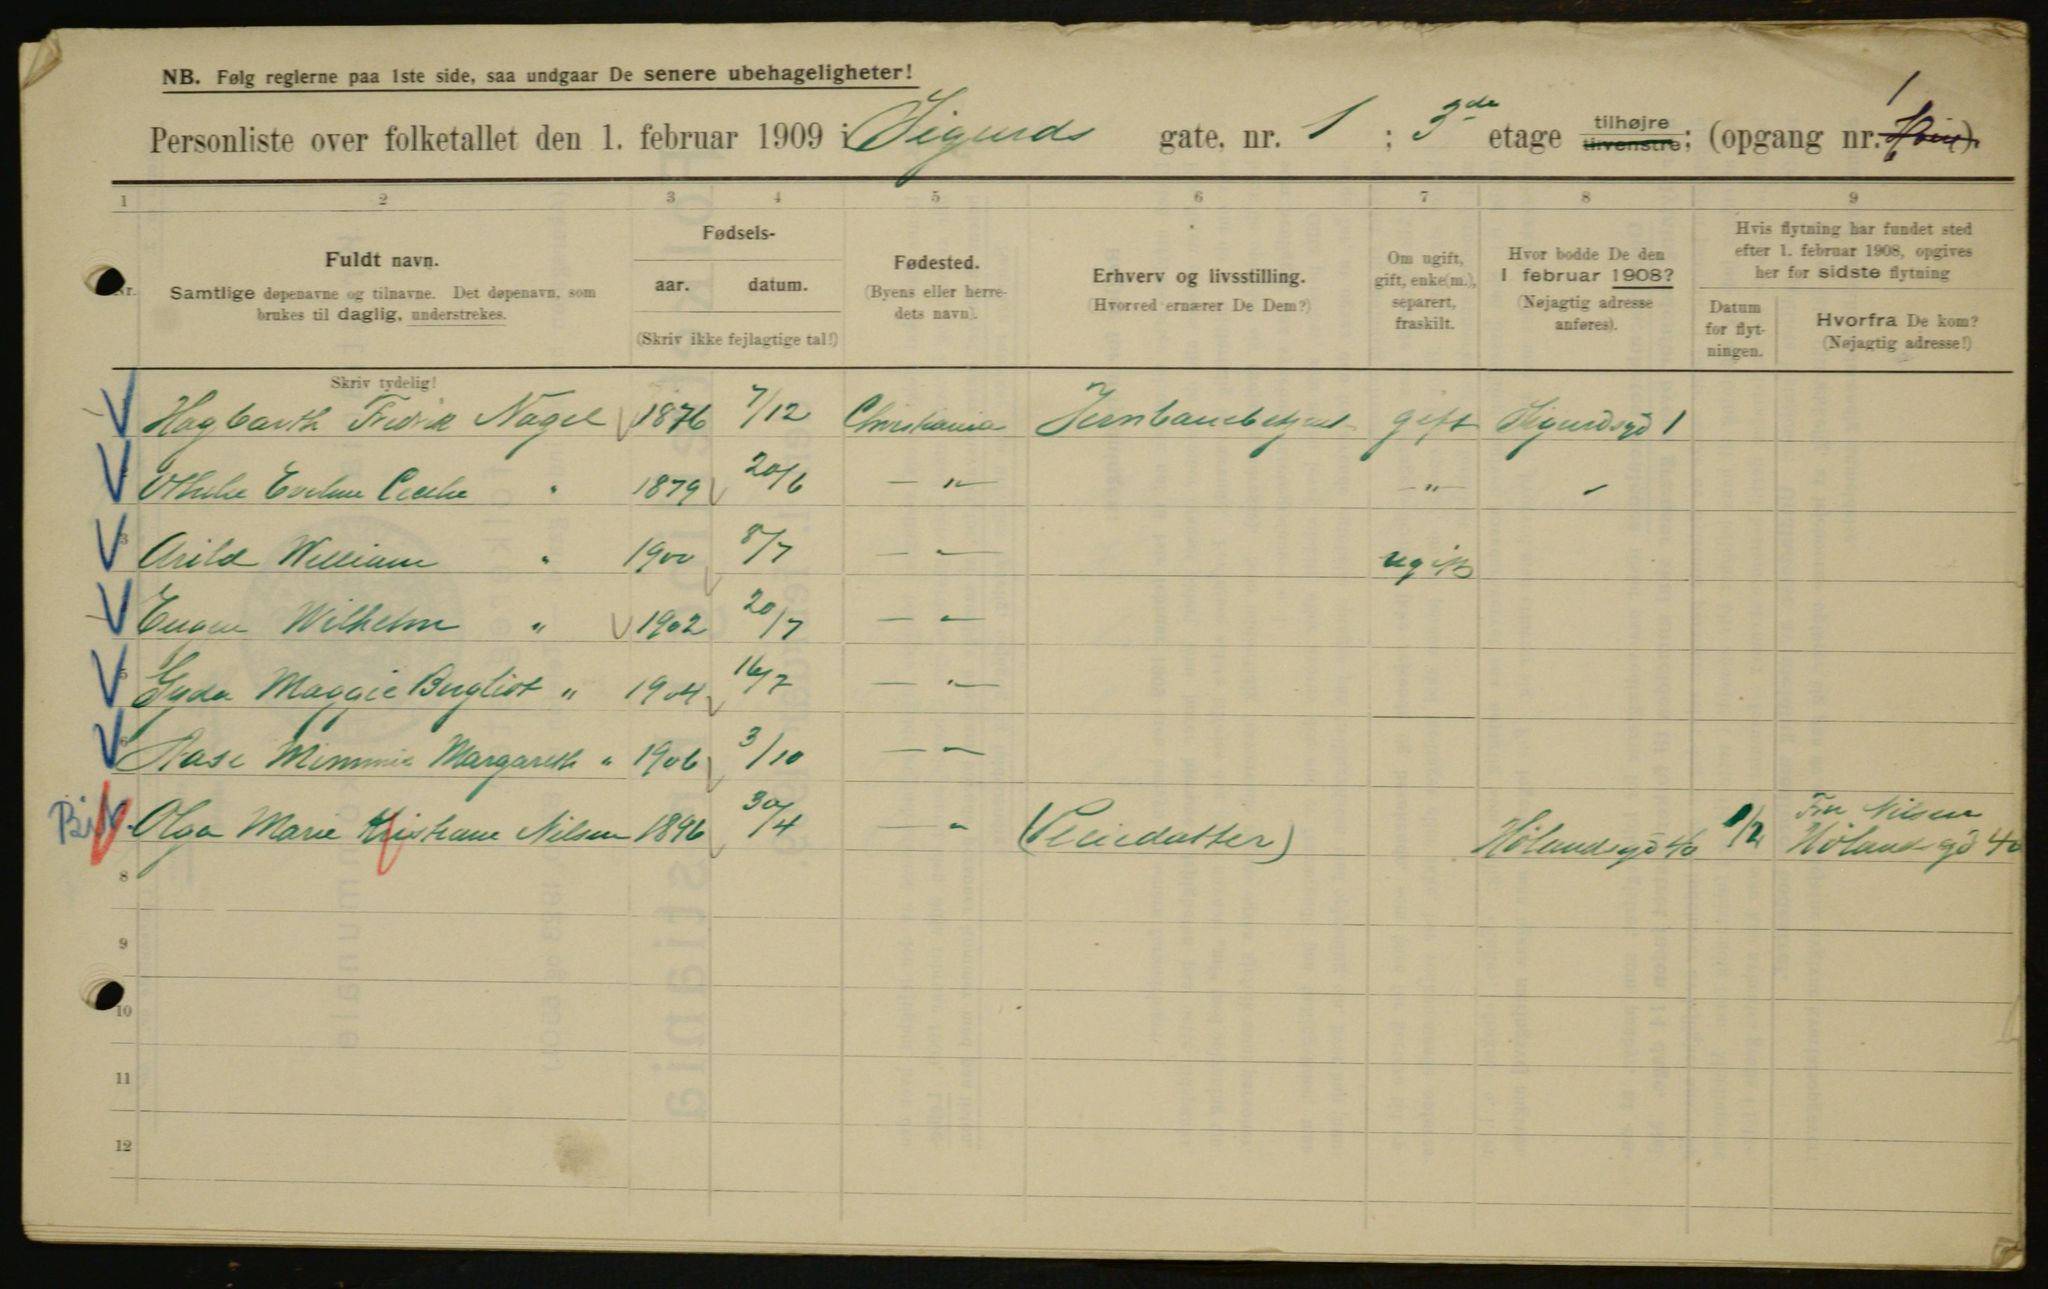 NB. Følg reglerne paa 1ste side, saa undgaar De senere ubehageligheter!
Personliste over folketallet den 1. februar 1909 i Sigurds gate, nr. 1 ; 3de etage tilhøjre tilvenstre; (opgang nr. 1 ).
1 2 3 4 5 6 7 8 9
Nr.
Fuldt navn.
Samtlige døpenavne og tilnavne. Det døpenavn, som
brukes til daglig, understrekes.
Skriv tydelig!
Fødsels-
aar. datum.
(Skriv ikke fejlagtige tal!)
Fødested.
(Byens eller herre-
dets navn).
Erhverv og livsstilling.
(Hvorved ernærer De Dem?)
Om ugift,
gift, enke(m.),
separert,
fraskilt.
Hvor bodde De den
1 februar 1908?
(Nøjagtig adresse
anføres).
Hvis flytning har fundet sted
efter 1. februar 1908, opgives
her for sidste flytning
Datum
for flyt-
ningen.
Hvorfra De kom?
(Nøjagtig adresse!)
Hagbarth Fredrik Nagel 1876 7/12 Christiania Jernbanebetjent gift Sigurdsgd 1
Othilie Eveline Cecilie " 1879 20/6 — " — — " — "
3 Arild William " 1900 8/7 — " — ugift
Eugen Wilhelm " 1902 20/7 — " —
5 Gyda Maggie Bergliot " 1904 16/7 — " —
6 Aase Mimmie Margareth " 1906 3/10 — " —
Olga Marie Kristiane Nilsen 1896 30/4 — " (Pleiedatter) Hølandsgd 40 1/2 Fru Nilsen
Hølandsgd 40
8
9
10
11
12